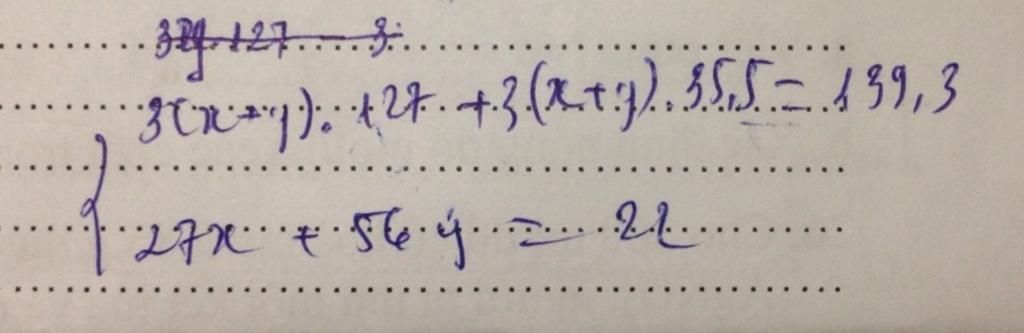 3y.127 3
3(x+y).127 +3(x+y).35,5 = 139,3
27x + 56y = 22